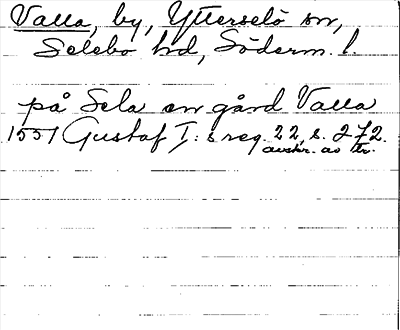 Valla, by, Ytterselö sn,
Selebo hd, Söderm. l.
på Sela en gård Valla
1551 Gustaf I: s reg. 22, s. 272.
avskr. av tr.